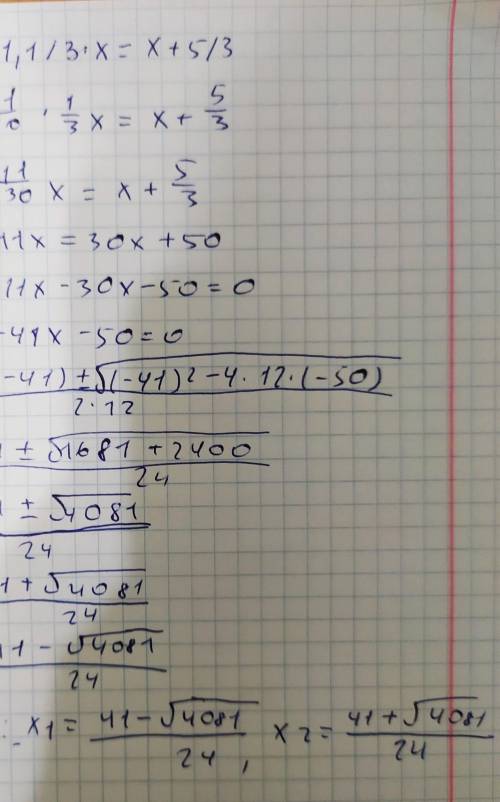 1,1/3·x = x+5/3
1/0 · 1/3 x = x + 5/3
11/30 x = x + 5/3
11x = 30x + 50
11x - 30x - 50 = 0
-41x - 50 = 0
-41) ± √(-41)² - 4·12·(-50) / 2·12
1 ± √1681 + 2400 / 24
1 ± √4081 / 24
1 + √4081 / 24
41 - √4081 / 24
: x1 = 41-√4081 / 24, x2 = 41+√4081 / 24